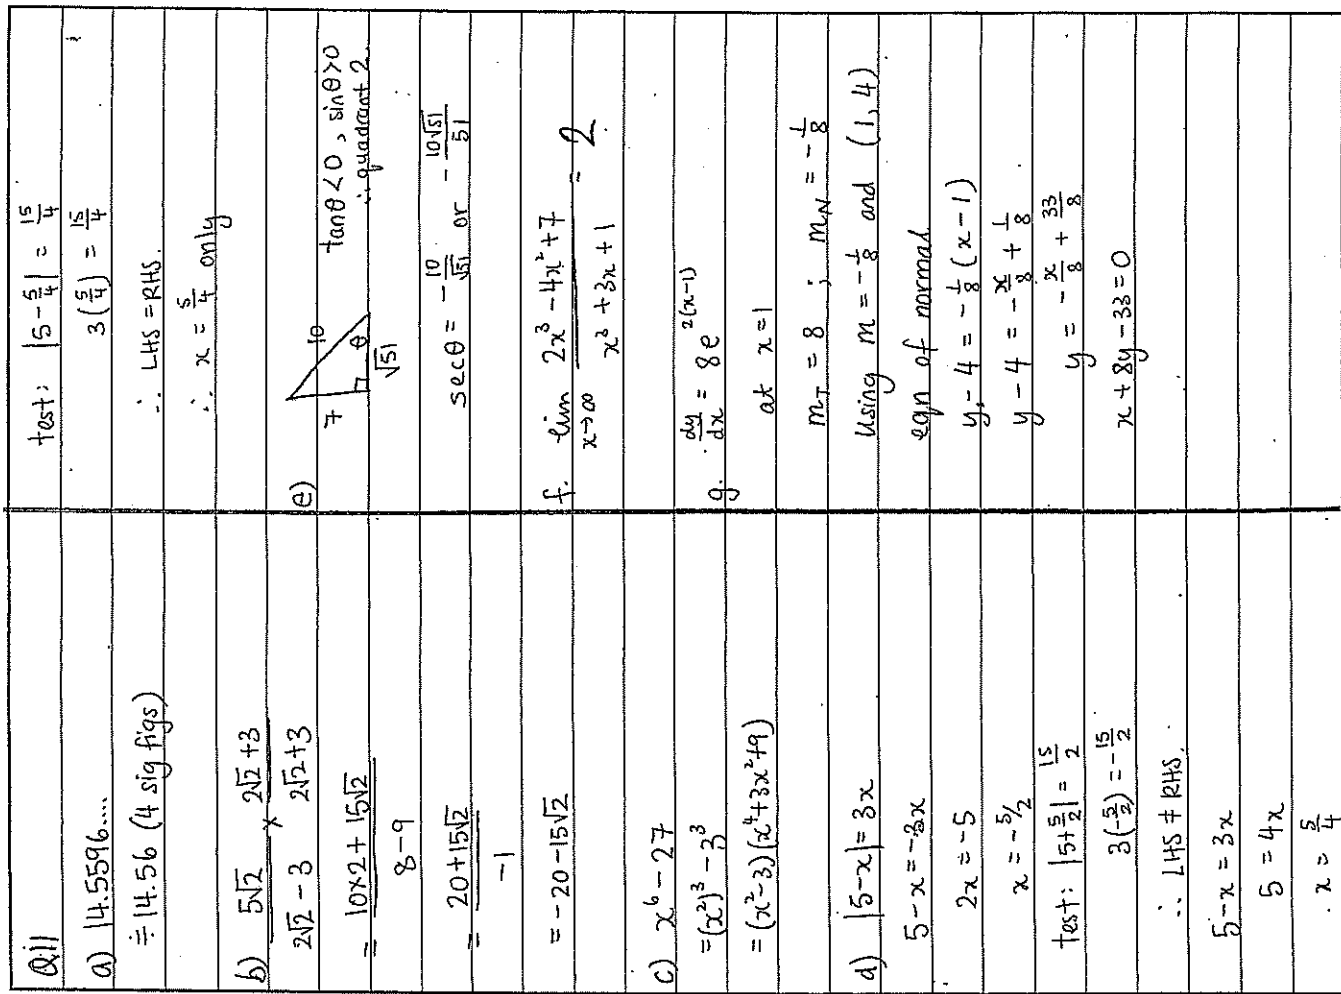 Q11
a) 14.5596....
≑ 14.56 (4 sig figs)
b) 5√2/(2√2 - 3) × (2√2+3)/(2√2+3)
= (10×2 + 15√2)/(8-9)
= (20+15√2)/-1
= -20-15√2
c) x⁶ - 27
= (x²)³ - 3³
= (x²-3)(x⁴+3x²+9)
d) |5-x| = 3x
5-x = -3x
2x = -5
x = -5/2
test: |5+5/2| = 15/2
3(-5/2) = -15/2
∴ LHS ≠ RHS.
5-x = 3x
5 = 4x
x = 5/4
test: |5-5/4| = 15/4
3(5/4) = 15/4
∴ LHS = RHS
∴ x = 5/4 only
e) 7 10 θ √51
tanθ<0, sinθ>0
∴ quadrant 2
secθ = -10/√51 or -10√51/51
f. lim x→∞ (2x³ - 4x² + 7)/(x³ + 3x + 1) = 2
g. dy/dx = 8e^(2(x-1))
at x=1
m_T = 8 ; m_N = -1/8
Using m = -1/8 and (1,4)
eqn of normal
y - 4 = -1/8 (x-1)
y - 4 = -x/8 + 1/8
y = -x/8 + 33/8
x + 8y - 33 = 0